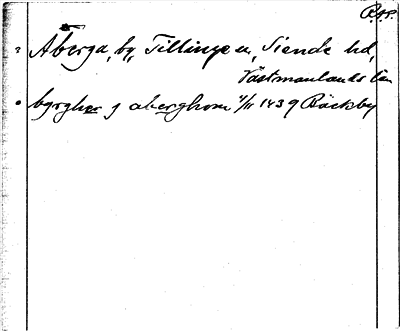 RAP.
Åberga, by, Tillinge sn, Siende hd,
Västmanlands län
byrgher j aberghom 4/11 1439 Bäckby